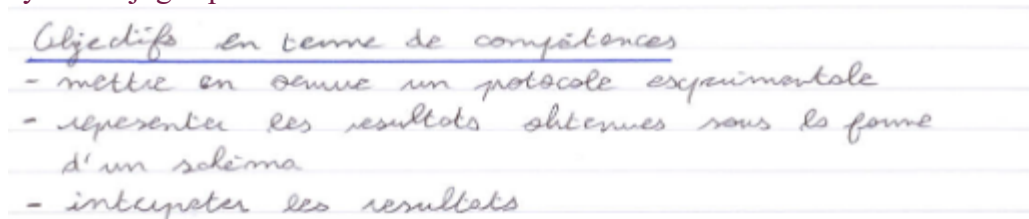 Objectifs en terme de compétences
- mettre en oeuvre un protocole expérimentale
- representer les resultats obtenues sous la forme
d'un schéma
- interpreter les resultats